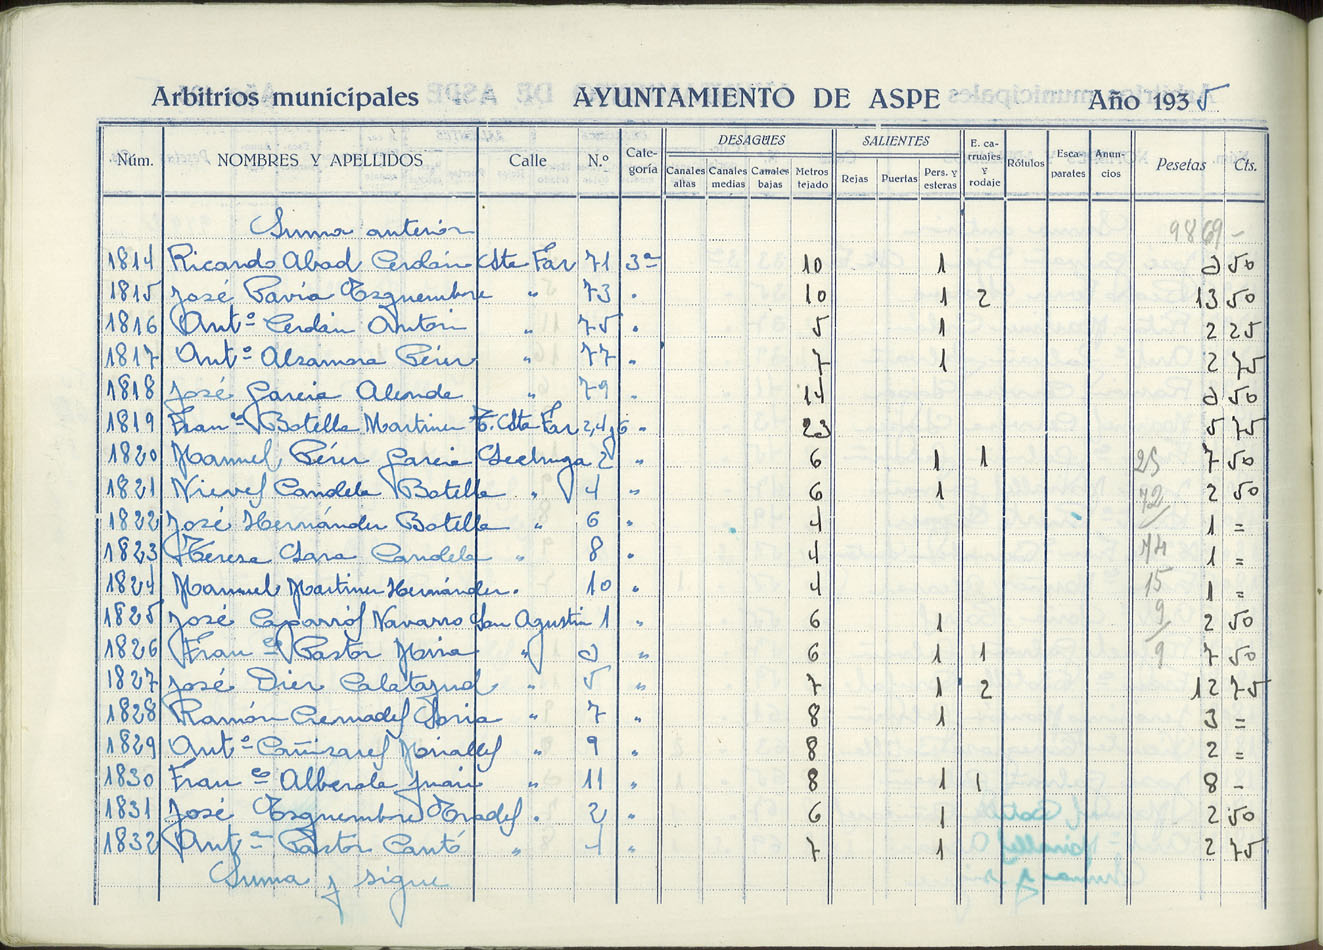 Arbitrios municipales AYUNTAMIENTO DE ASPE Año 1935
Núm. NOMBRES Y APELLIDOS Calle N.º Categoría DESAGÜES Canales altas Canales medias Canales bajas Metros tejado SALIENTES Rejas Puertas Pers. Y esteras E. carruajes Y rodaje Rótulos Escaparates Anuncios Pesetas Cts.
Suma anterior 9869 -
1814 Ricardo Abad Cerdán Cta Far 71 3ª 10 1 3 50
1815 José Pavía Esquembre " 73 " 10 1 2 13 50
1816 Antº Cerdán Antón " 75 " 5 1 2 25
1817 Antº Alzamora Pérez " 77 " 7 1 2 75
1818 José García " 79 " 14 3 50
1819 Franco Botella Martínez Cta Far 2,4 y 6 " 23 5 75
1820 Manuel Pérez García 2 " 6 1 1 25 7 50
1821 Nieves Candela Botella " 4 " 6 1 72 2 50
1822 José Hernández Botella " 6 " 4 1 =
1823 Teresa Candela " 8 " 4 74 1 =
1824 Manuel Martínez Hernández " 10 " 4 15 1 =
1825 José Caparrós Navarro San Agustín 1 " 6 1 9 2 50
1826 Franco Pastor " 3 " 6 1 1 9 7 50
1827 José Díez Calatayud " 5 " 7 1 2 12 75
1828 Ramón Cremades Soria " 7 " 8 1 3 =
1829 Antº Cañizares Miralles " 9 " 8 2 =
1830 Franco Alberola Juan " 11 " 8 1 1 8 -
1831 José Esquembre Prades " 2 " 6 1 2 50
1832 Antº Pastor Cantó " 4 " 7 1 2 75
Suma y sigue